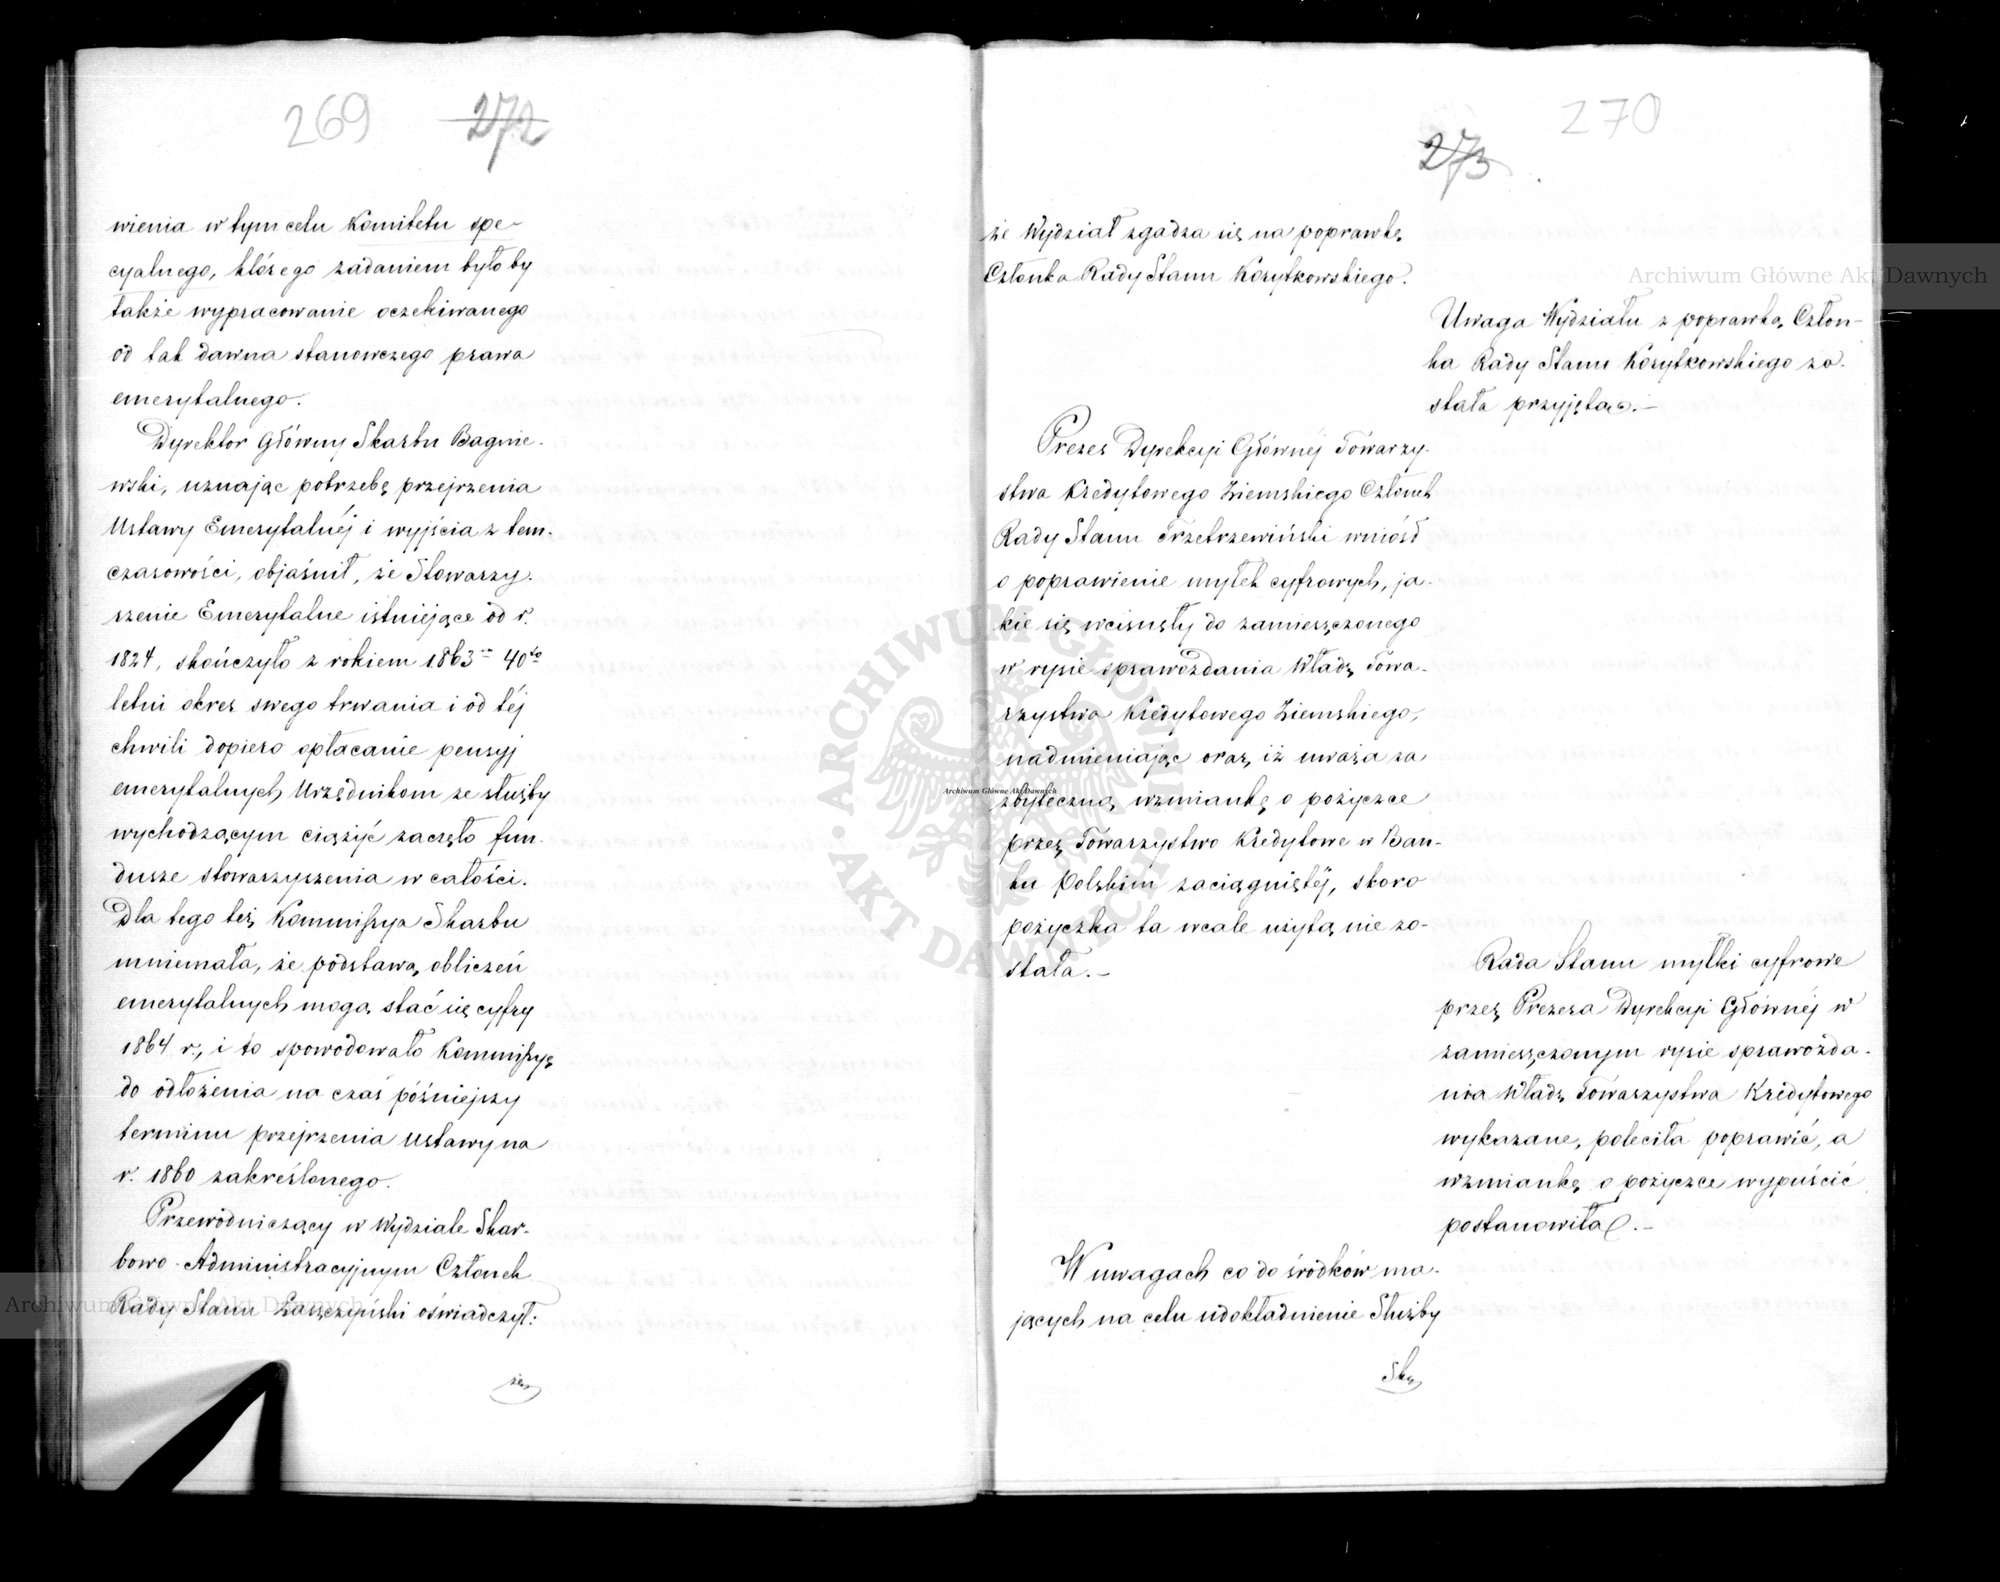 269 272
wienia w tym celu Komitetu spe-
cyalnego, którego zadaniem było by
także wypracowanie oczekiwanego
od tak dawna stanowczego prawa
emerytalnego.
Dyrektor Główny Skarbu Bagnie-
wski, uznając potrzebę przejrzenia
Ustawy Emerytalnéj i wyjścia z tem-
czasowości, objaśnił, że Stowarzy-
szenie Emerytalne istniejące od r.
1824, skończyło z rokiem 1863 40to
letni okres swego trwania i od téj
chwili dopiero opłacanie pensyj
emerytalnych Urzędnikom ze służby
wychodzącym ciążyć zaczęło fun-
dusze stowarzyszenia w całości.
Dla tego też Kommissya Skarbu
mniemała, że podstawą obliczeń
emerytalnych mogą stać się cyfry
1864 r., i to spowodowało Kommissyę
do odłożenia na czas późniejszy
terminu przejrzenia ustawy na
r. 1860 zakreślonego.
Przewodniczący w Wydziale Skar-
bowo-Administracyjnym Członek
Rady Stanu Łaszczyński oświadczył:
że
270
273
że Wydział zgadza się na poprawkę
Członka Rady Stanu Korytkowskiego.
Uwaga Wydziału z poprawką Człon-
ka Rady Stanu Korytkowskiego zo-
stała przyjętą.-
Prezes Dyrekcyi Głównéj Towarzy-
stwa Kredytowego Ziemskiego Członek
Rady Stanu Trzetrzewiński wniósł
o poprawienie myłek cyfrowych, ja-
kie się wcisnęły do zamieszczonego
w rysie sprawozdania Władz Towa-
rzystwa Kredytowego Ziemskiego,
nadmieniając oraz, iż uważa za
zbyteczną wzmiankę o pożyczce
przez Towarzystwo Kredytowe w Ban-
ku Polskim zaciągniętéj, skoro
pożyczka ta wcale użytą nie zo-
stała.-
Rada Stanu myłki cyfrowe
przez Prezesa Dyrekcyi Głównéj w
zamieszczonym rysie sprawozda-
nia Władz Towarzystwa Kredytowego
wykazane, poleciła poprawić, a
wzmiankę o pożyczce wypuścić
postanowiła.-
W uwagach co do środków ma-
jących na celu udokładnienie Służby
Ska
Archiwum Główne Akt Dawnych
Archiwum Główne Akt Dawnych
Archiwum Główne Akt Dawnych
ARCHIWUM GŁÓWNE · AKT DAWNYCH ·